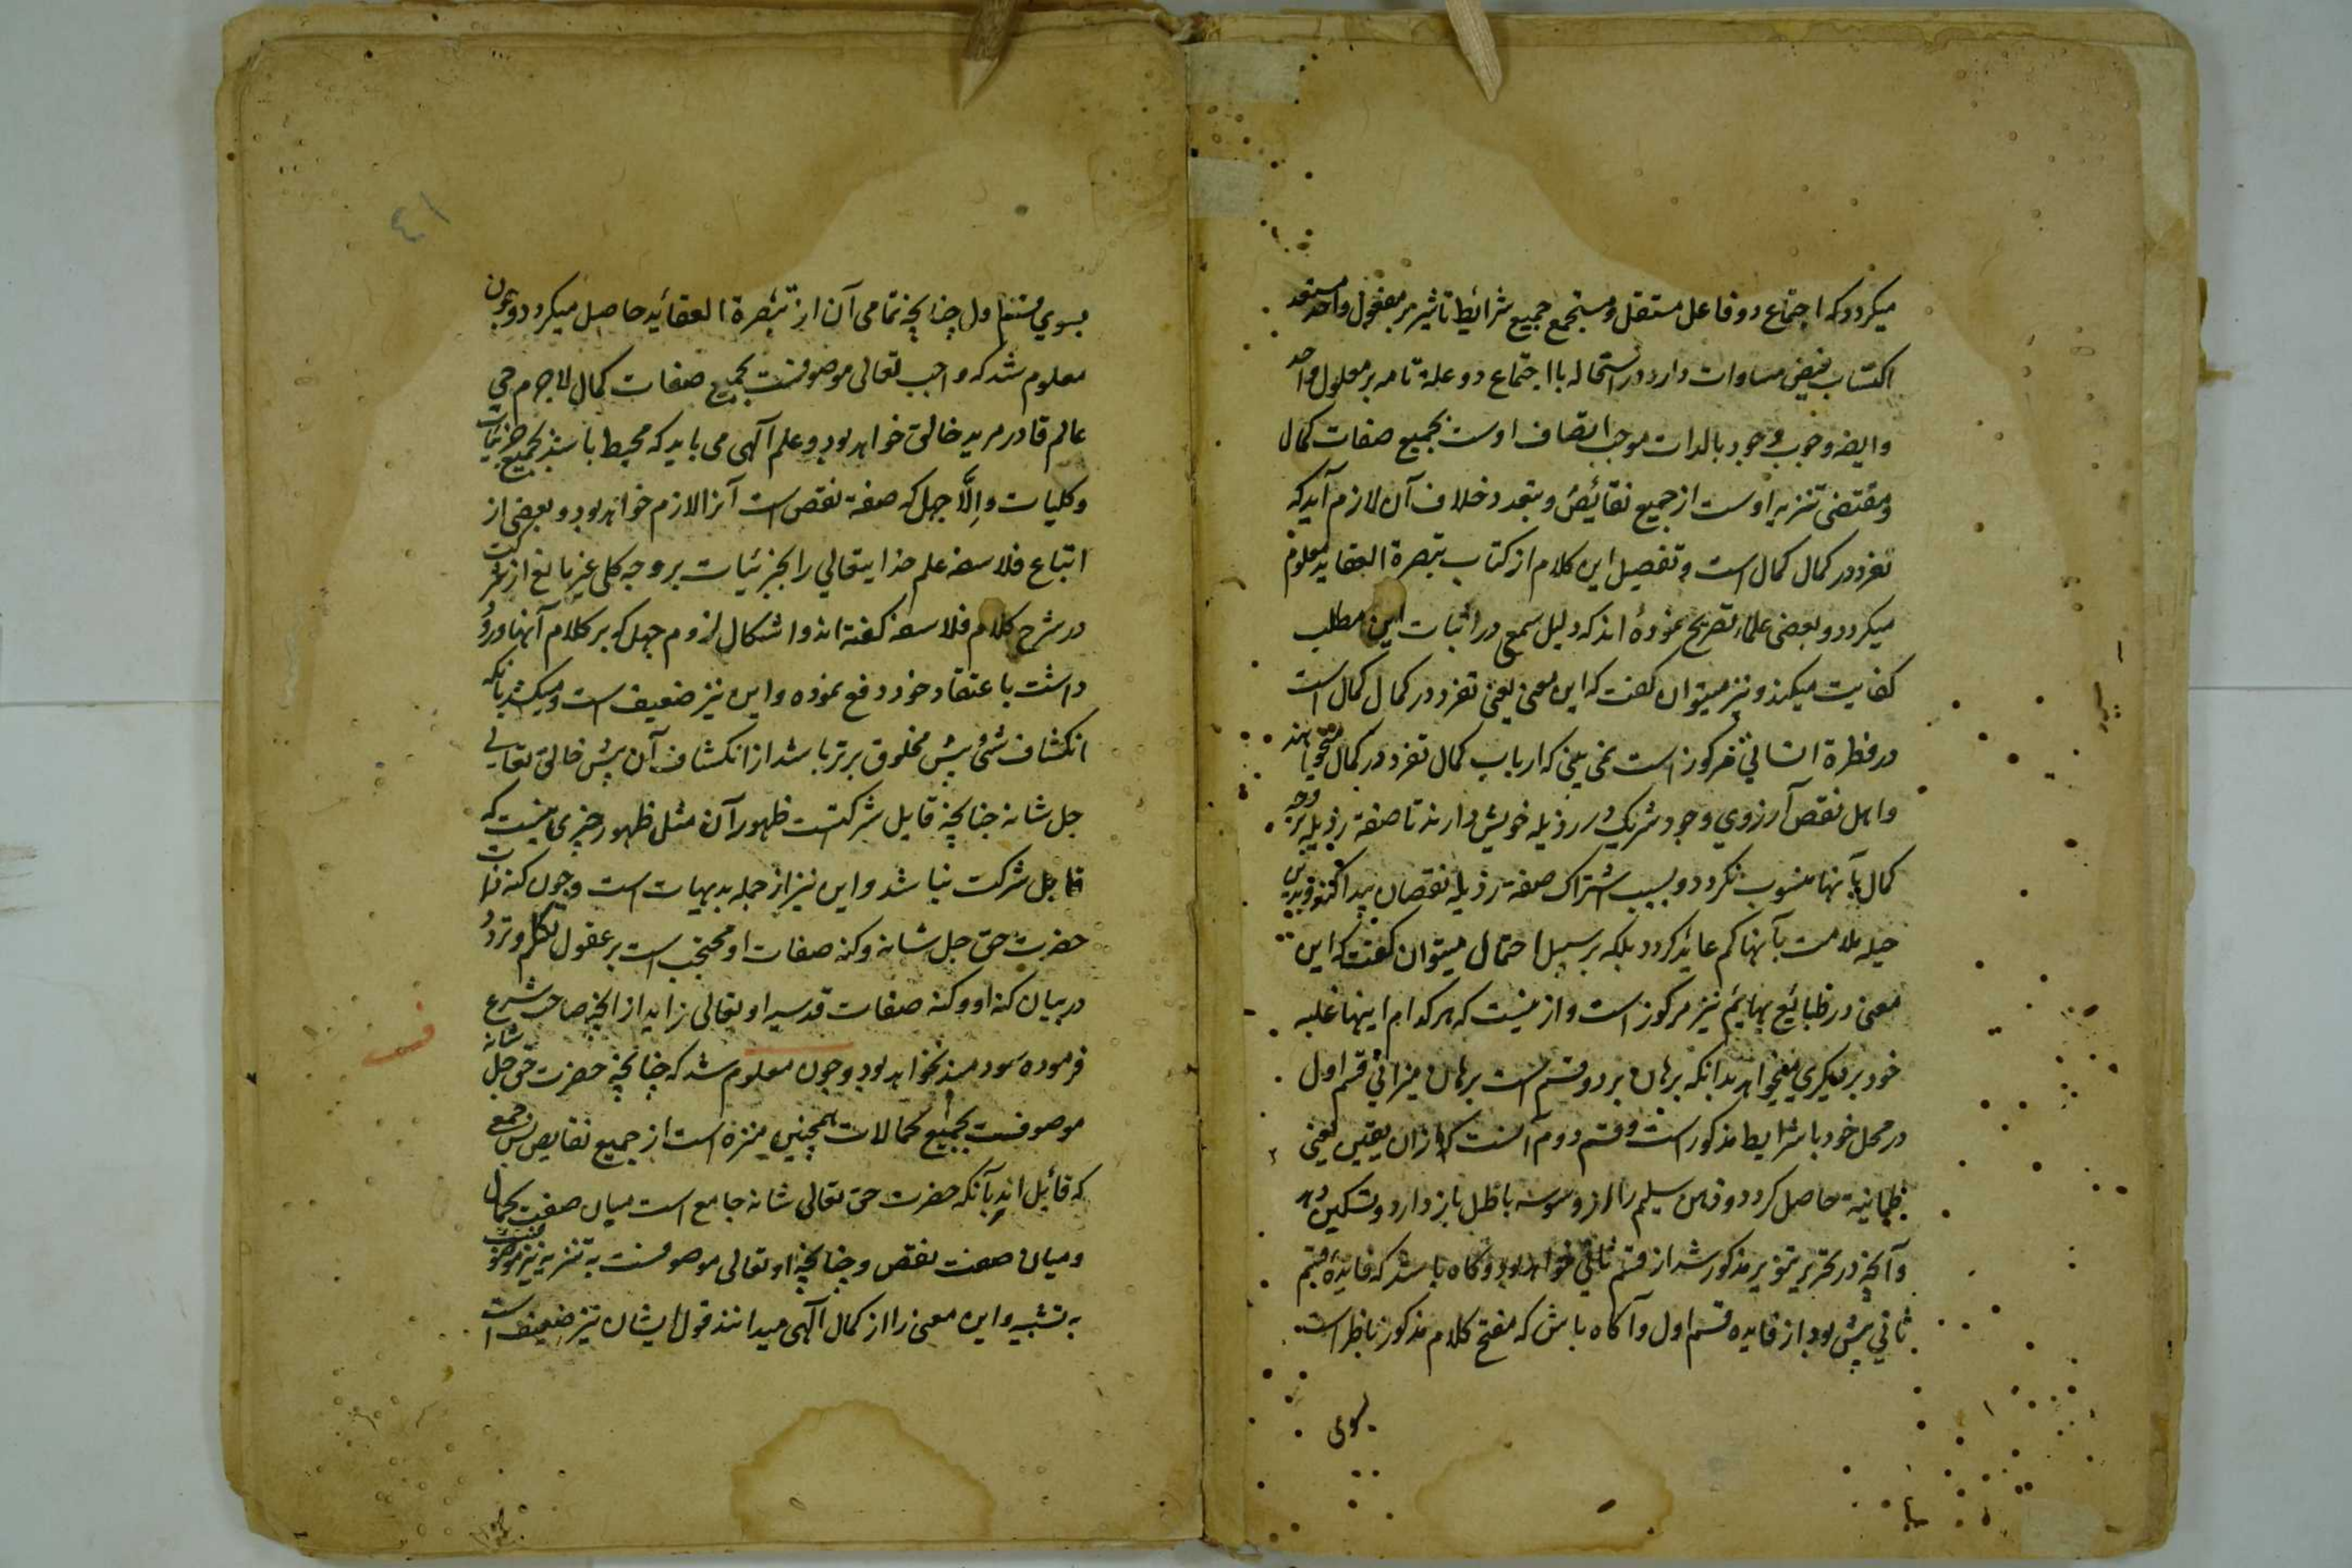 میکردد که اجتماع دو فاعل مستقل و مستجمع جمیع شرائیط تاثیر بر مفعول واحد مستعد
اکتساب فیض مساوات دارد در استحاله با اجتماع دو علة تامه بر معلول واحد
وایضه وجوب وجود بالذات موجب اتصاف اوست بجمیع صفات کمال
ومقتضی تنزیه اوست از جمیع نقائیص و بتعدد خلاف آن لازم آید که
تفرد در کمال کمال است و تفصیل این کلام از کتاب تبصرة العقاید معلوم
میکردد و بعضی علماء تصریح نموده اند که دلیل سمع در اثبات این مطلب
کفایت میکند و نیز میتوان کفت که این معنی یعنی تفرد در کمال کمال است
در فطرة انسانی مرکوز است نمی بینی که ارباب کمال تفرد در کمال میخواهند
واهل نقص آرزوی وجود شریک در رذیله خویش دارند تا صفة رذیله بر وجه
کمال بآنها منسوب نکردد و بسبب اشتراک صفة رذیله نقصان پیدا کند و بدین
حیله ملامت بآنها کم عائد کردد بلکه بر سبیل احتمال میتوان کفت که این
معنی در طبائع بهایم نیز مرکوز است و ازینست که هر کدام اینها غلبه
خود بر دیکری میخواهد بدانکه برهان بر دو قسم است برهان میزانی قسم اول
در محل خود با شرایط مذکور است و قسم دوم آنست که ازان یقین یعنی
طمانینة حاصل کردد و ذهن سلیم را از وسوسه باطل باز دارد و تسکین دهد
وآنچه در تحریر تنویر مذکور شد از قسم ثانی خواهد بود و کاه باشد که فایده قسم
ثانی پیش بود از فایده قسم اول و آکاه باش که مفتح کلام مذکور ناظر است
بسوی
٤١
بسوی قسم اول چنانچه تمامی آن از تبصرة العقائید حاصل میکردد و چون
معلوم شد که واجب تعالی موصوفست بجمیع صفات کمال لاجرم حی
عالم قادر مرید خالق خواهد بود و علم آلهی می باید که محیط باشد بجمیع جزئیات
وکلیات وإلَّا جهل که صفة نقص است آنرا لازم خواهد بود و بعضی از
اتباع فلاسفه علم خدایتعالی را بجزئیات بر وجه کلی غیر مانع از شرکت
در شرح کلام فلاسفه کفته اند و اشکال لزوم جهل که بر کلام آنها ورود
داشت باعتقاد خود دفع نموده و این نیز ضعیف است و میکشد بانکه
انکشاف شئ پیش مخلوق برتر باشد از انکشاف آن پیش خالق تعالی
جل شانه چنانچه قایل شرکتست ظهور آن مثل ظهور چیزی نیست که
قابل شرکت نباشد و این نیز از جمله بدیهیات است و چون کنه ذات
حضرت حق جل شانه و کنه صفات او محتجب است بر عقول تکلم و تردد
در بیان کنه او و کنه صفات قدسیه او تعالی زاید از آنچه صاحب شرع
فرموده سودمند نخواهد بود و چون معلوم شد که چنانچه حضرت حق جل شانه
موصوفست بجمیع کمالات همچنین منزه است از جمیع نقایص پس جمعی
که قائیل اند بآنکه حضرت حق تعالی شانه جامع است میان صفت کمال
ومیان صفت نقص و چنانچه او تعالی موصوفست به تنزیه نیز موصوفست
به تشبیه و این معنی را از کمال آلهی میدانند قول ایشان نیز ضعیف است